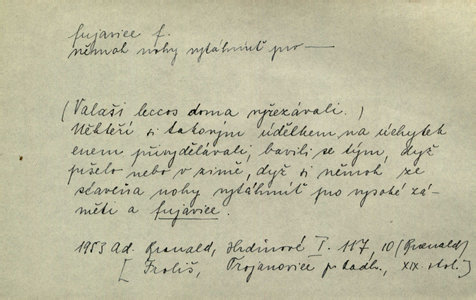 fujavice f.
němoh nohy vytáhnúť pro —
(Valaši leccos doma vyřezávali.)
Někteří si takovým údělkem na úchytek
enem přivydělávali, bavili se tým, dyž
pršelo nebo v zimě, dyž si němoh ze
staveňa nohy vytáhnúť pro vysoké zá-
měti a fujavice.
1953 Ad. Granald, Hrdinové I. 117, 10 (Granald)
[Froliš, Trojanovice p. Radh., XIX. stol.]